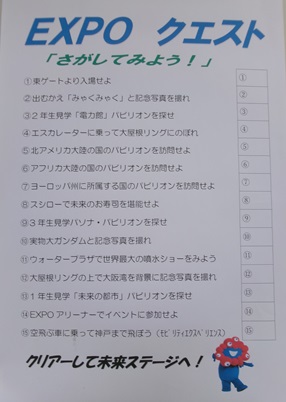 EXPO クエスト
「さがしてみよう！」
①東ゲートより入場せよ ①
②出むかえ「みゃくみゃく」と記念写真を撮れ ②
③２年生見学「電力館」パビリオンを探せ ③
④エスカレーターに乗って大屋根リングにのぼれ ④
⑤北アメリカ大陸の国のパビリオンを訪問せよ ⑤
⑥アフリカ大陸の国のパビリオンを訪問せよ ⑥
⑦ヨーロッパ州に所属する国のパビリオンを訪問せよ ⑦
⑧スシローで未来のお寿司を堪能せよ ⑧
⑨３年生見学パソナ・パビリオンを探せ ⑨
⑩実物大ガンダムと記念写真を撮れ ⑩
⑪ウォータープラザで世界最大の噴水ショーをみよう ⑪
⑫大屋根リングの上で大阪湾を背景に記念写真を撮れ ⑫
⑬１年生見学「未来の都市」パビリオンを探せ ⑬
⑭EXPOアリーナーでイベントに参加せよ ⑭
⑮空飛ぶ車に乗って神戸まで飛ぼう（ﾓﾋﾞﾘﾃｨｴｸｽﾍﾟﾘｴﾝｽ） ⑮
クリアーして未来ステージへ！